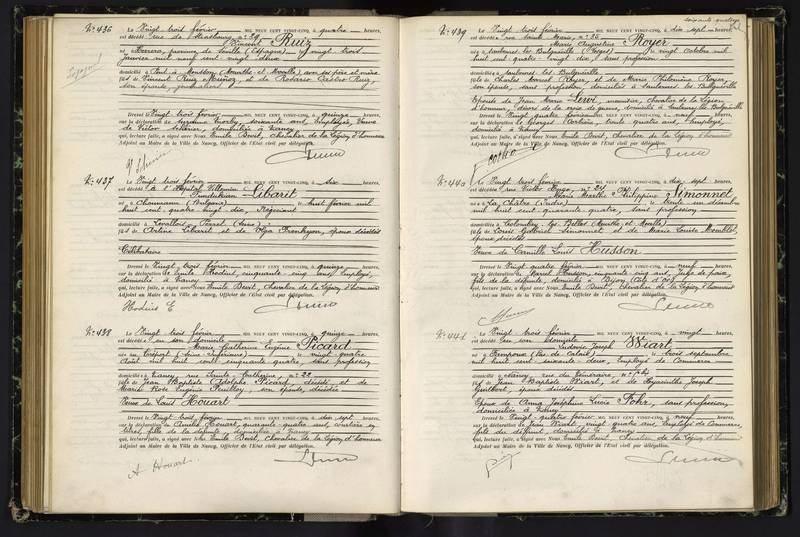 N° 436
Le Vingt trois février MIL NEUF CENT VINGT-CINQ, à quatre heures,
est décédé rue de Strasbourg, n° 89
Vincent Ruiz
né à Herrera, province de Séville (Espagne) le vingt trois
janvier mil neuf cent vingt deux
domicilié à Pont à Mousson (Meurthe et Moselle) avec ses père et mère
fils de Vincent Ruiz et de Rosario Ruiz,
son épouse, journaliers
Dressé le Vingt trois février MIL NEUF CENT VINGT-CINQ, à quinze heures,
sur la déclaration de soixante ans, employée, Veuve
de Victor domiciliée à Nancy
qui, lecture faite, a signé avec Nous Emile Chevalier de la Légion d'honneur
Adjoint au Maire de la Ville de Nancy, Officier de l'Etat civil par délégation.
N° 437
Le Vingt trois février MIL NEUF CENT VINGT-CINQ, à six heures,
est décédé à l'Hôpital Villemin
Libarit
né à (Bulgarie) le huit février mil
huit cent quatre vingt dix, Négociant
domicilié à Levallois Perret (Seine)
fils de Libarit, et de Olga époux décédés
Célibataire
Dressé le Vingt trois février MIL NEUF CENT VINGT-CINQ, à quinze heures,
sur la déclaration de Emile cinquante cinq ans, employé,
domicilié à Nancy
qui, lecture faite, a signé avec Nous Emile Chevalier de la Légion d'honneur
Adjoint au Maire de la Ville de Nancy, Officier de l'Etat civil par délégation.
N° 438
Le Vingt trois février MIL NEUF CENT VINGT-CINQ, à quinze heures,
est décédée en son domicile
Marie Catherine Eugénie Picard
née au Tréport (Seine Inférieure) le vingt quatre
août mil huit cent cinquante quatre, sans profession
domiciliée à Nancy, rue Sainte Catherine, n° 22
fille de Jean Baptiste Adolphe Picard, décédé et de
Marie Rose Eugénie son épouse, décédée
Veuve de Louis Houart
Dressé le Vingt trois février MIL NEUF CENT VINGT-CINQ, à dix sept heures,
sur la déclaration de Amélie Houart, quarante quatre ans,
fille de la défunte, domiciliée à Nancy
qui, lecture faite, a signé avec Nous Emile Chevalier de la Légion d'honneur
Adjoint au Maire de la Ville de Nancy, Officier de l'Etat civil par délégation.
A Houart
N° 439
Le Vingt trois février MIL NEUF CENT VINGT-CINQ, à dix sept heures,
est décédée rue Sainte Marie, n° 35
Marie Augustine Royer
née à Saulxures les Bulgnéville (Vosges) le vingt octobre mil
huit cent quatre vingt dix, sans profession
domiciliée à Saulxures les Bulgnéville
fille de Charles Royer, et de Marie Philomène Royer,
son épouse, sans profession, domiciliés à Saulxures les Bulgnéville
Epouse de Jean Marie chevalier de la Légion
d'honneur, décoré de la croix de guerre, domicilié à Saulxures les Bulgnéville
Dressé le Vingt quatre février MIL NEUF CENT VINGT-CINQ, à neuf heures,
sur la déclaration de Georges trente quatre ans, employé,
domicilié à Nancy
qui, lecture faite, a signé avec Nous Emile Chevalier de la Légion d'honneur
Adjoint au Maire de la Ville de Nancy, Officier de l'Etat civil par délégation.
N° 440
Le Vingt trois février MIL NEUF CENT VINGT-CINQ, à dix sept heures,
est décédée rue Victor Hugo, n° 24
Marie Marthe Philippine Simonnet
née à La Châtre (Indre) le trente un décembre
mil huit cent quarante quatre, sans profession
domiciliée à Colombey les Belles (Meurthe et Moselle)
fille de Louis Simonnet et de Marie Louise
époux décédés
Veuve de Camille Louis Husson
Dressé le Vingt quatre février MIL NEUF CENT VINGT-CINQ, à neuf heures,
sur la déclaration de Marcel Husson, cinquante cinq ans, Juge de paix,
fils de la défunte, domicilié à Dijon (Côte d'or)
qui, lecture faite, a signé avec Nous Emile Chevalier de la Légion d'honneur
Adjoint au Maire de la Ville de Nancy, Officier de l'Etat civil par délégation.
N° 441
Le Vingt trois février MIL NEUF CENT VINGT-CINQ, à vingt heures,
est décédé en son domicile
Ludovic Joseph Wiart
né à Fampoux (Pas de Calais) le trois septembre
mil huit cent soixante deux, Employé de Commerce
domicilié à Nancy, rue du
fils de Jean Baptiste Wiart, et de Hyacinthe Joseph
époux décédés
Epoux de Anna Joséphine Lucie Fehr, sans profession,
domiciliée à Nancy
Dressé le Vingt quatre février MIL NEUF CENT VINGT-CINQ, à neuf heures,
sur la déclaration de Jean Wiart, vingt quatre ans, employé de Commerce,
fils du défunt, domicilié à Nancy
qui, lecture faite, a signé avec Nous Emile Chevalier de la Légion d'honneur
Adjoint au Maire de la Ville de Nancy, Officier de l'Etat civil par délégation.